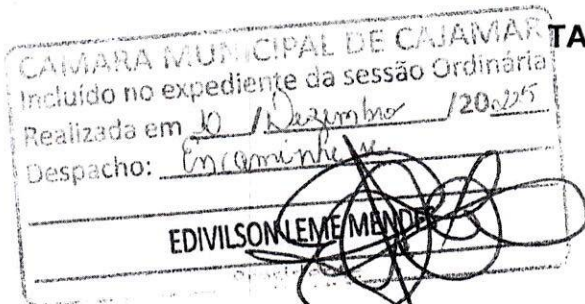 CAMARA MUNICIPAL DE CAJAMAR TA
Incluído no expediente da sessão Ordinária
Realizada em 10 / Dezembro /2025
Despacho: Encaminhe-se
EDIVILSON LEME MENDES